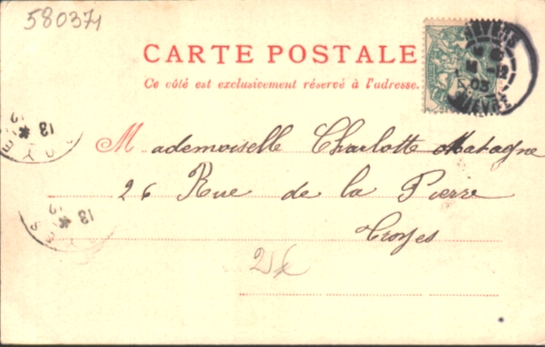 580371
CARTE POSTALE
Ce côté est exclusivement réservé à l'adresse.
Mademoiselle Charlotte Matagne
26 Rue de la Pierre
Troyes
03
13
13